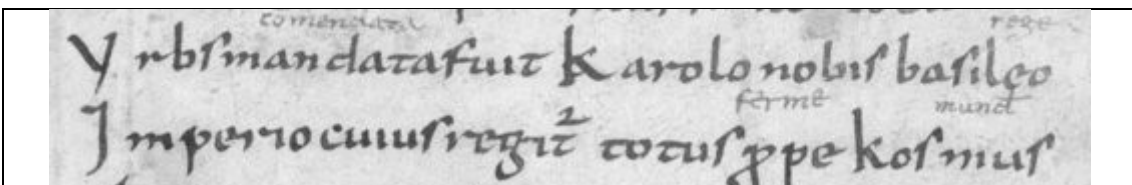 comendata rege
Vrbs mandata fuit Karolo nobis basileo
ferme mund
Imperio cuius regit᷑ totus ꝓpe kosmus